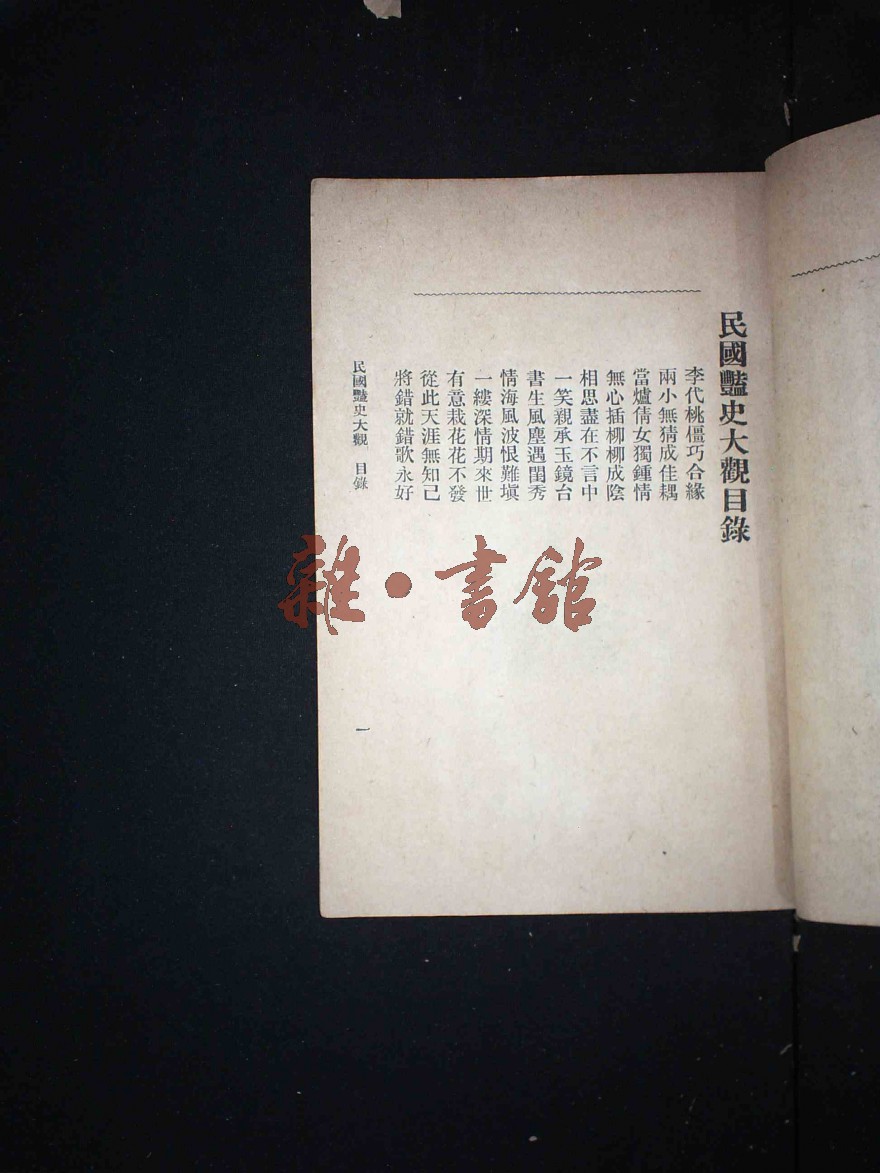 民國豔史大觀目錄
李代桃僵巧合緣
兩小無猜成佳耦
當爐倩女獨鍾情
無心插柳柳成陰
相思盡在不言中
一笑親承玉鏡台
書生風塵遇閨秀
情海風波恨難塡
一縷深情期來世
有意栽花花不發
從此天涯無知己
將錯就錯歌永好
民國豔史大觀 目錄
一
雜·書館